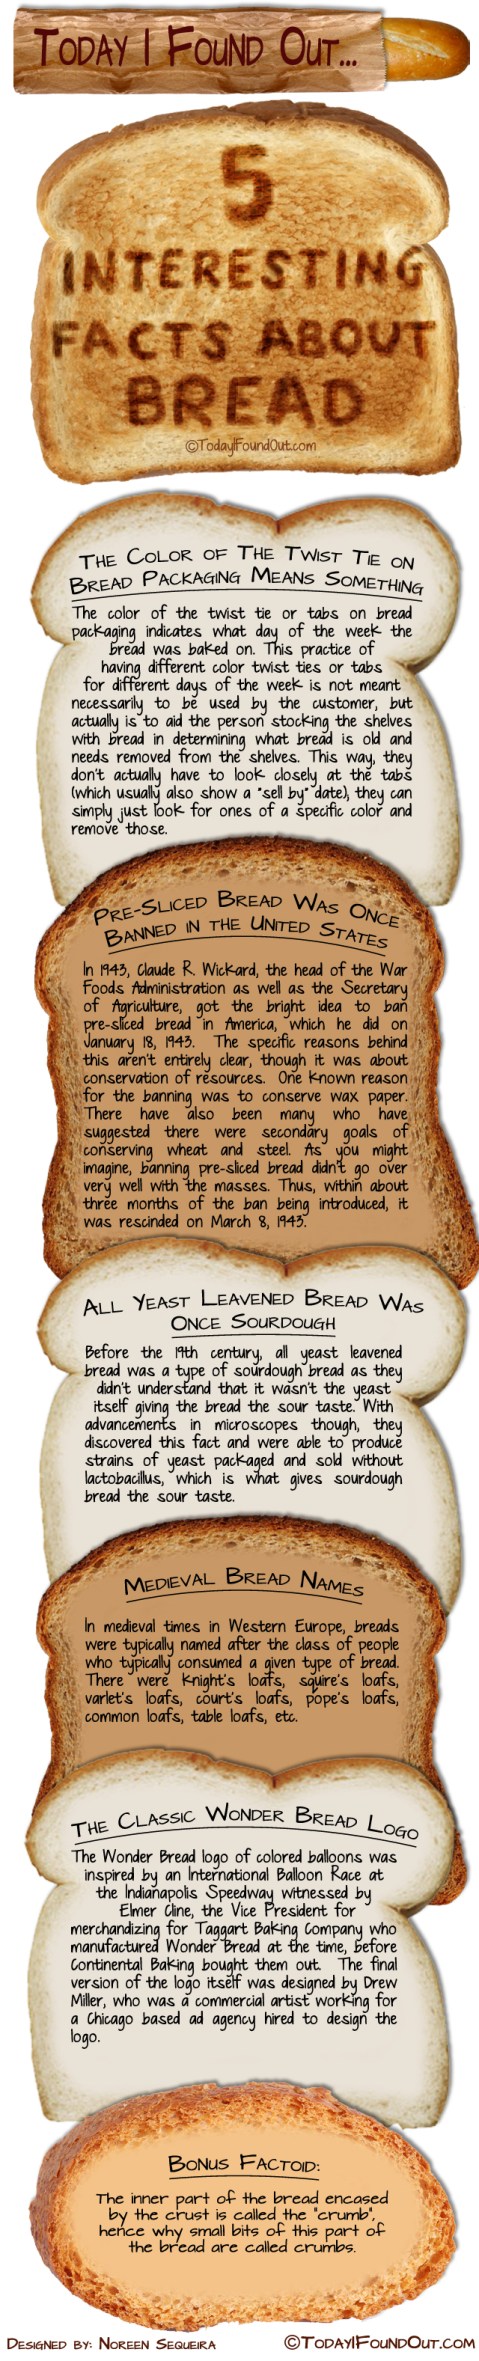 Today I Found Out...
5
Interesting
Facts About
Bread
©TodayIFoundOut.com
The Color of The Twist Tie on
Bread Packaging Means Something
The color of the twist tie or tabs on bread
packaging indicates what day of the week the
bread was baked on. This practice of
having different color twist ties or tabs
for different days of the week is not meant
necessarily to be used by the customer, but
actually is to aid the person stocking the shelves
with bread in determining what bread is old and
needs removed from the shelves. This way, they
don't actually have to look closely at the tabs
(which usually also show a "sell by" date), they can
simply just look for ones of a specific color and
remove those.
Pre-Sliced Bread Was Once
Banned in the United States
In 1943, Claude R. Wickard, the head of the War
Foods Administration as well as the Secretary
of Agriculture, got the bright idea to ban
pre-sliced bread in America, which he did on
January 18, 1943. The specific reasons behind
this aren't entirely clear, though it was about
conservation of resources. One known reason
for the banning was to conserve wax paper.
There have also been many who have
suggested there were secondary goals of
conserving wheat and steel. As you might
imagine, banning pre-sliced bread didn't go over
very well with the masses. Thus, within about
three months of the ban being introduced, it
was rescinded on March 8, 1943.
All Yeast Leavened Bread Was
Once Sourdough
Before the 19th century, all yeast leavened
bread was a type of sourdough bread as they
didn't understand that it wasn't the yeast
itself giving the bread the sour taste. With
advancements in microscopes though, they
discovered this fact and were able to produce
strains of yeast packaged and sold without
lactobacillus, which is what gives sourdough
bread the sour taste.
Medieval Bread Names
In medieval times in Western Europe, breads
were typically named after the class of people
who typically consumed a given type of bread.
There were knight's loafs, squire's loafs,
varlet's loafs, court's loafs, pope's loafs,
common loafs, table loafs, etc.
The Classic Wonder Bread Logo
The Wonder Bread logo of colored balloons was
inspired by an International Balloon Race at
the Indianapolis Speedway witnessed by
Elmer Cline, the Vice President for
merchandizing for Taggart Baking Company who
manufactured Wonder Bread at the time, before
Continental Baking bought them out. The final
version of the logo itself was designed by Drew
Miller, who was a commercial artist working for
a Chicago based ad agency hired to design the
logo.
Bonus Factoid:
The inner part of the bread encased
by the crust is called the "crumb",
hence why small bits of this part of
the bread are called crumbs.
Designed by: Noreen Sequeira
©TodayIFoundOut.com